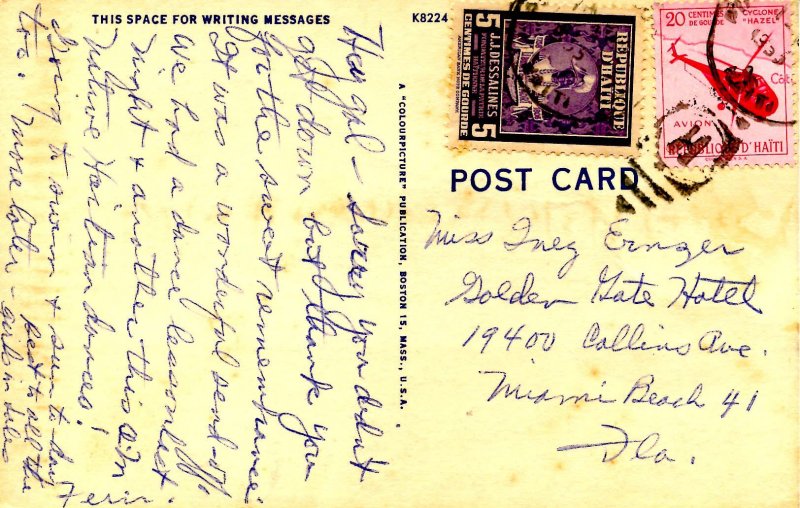 THIS SPACE FOR WRITING MESSAGES
Hey gal - Sorry you didn't
get down but thank you
for the sweet remembrance.
It was a wonderful send-off.
We had a dance lesson last
night & another this A.M.
Native Haitian dances!
Going to swim & sun to-day
too. More later - Best to all the
girls in
A "COLOURPICTURE" PUBLICATION, BOSTON 15, MASS., U.S.A.
K8224
POST CARD
5 5
J.J. DESSALINES
CENTIMES DE GOURDE
REPUBLIQUE
D'HAITI
20 CENTIMES
DE GOURDE
CYCLONE
"HAZEL"
AVION
REPUBLIQUE D'HAÏTI
Miss Inez Ernzer
Golden Gate Hotel
19400 Collins Ave.
Miami Beach 41
Fla.